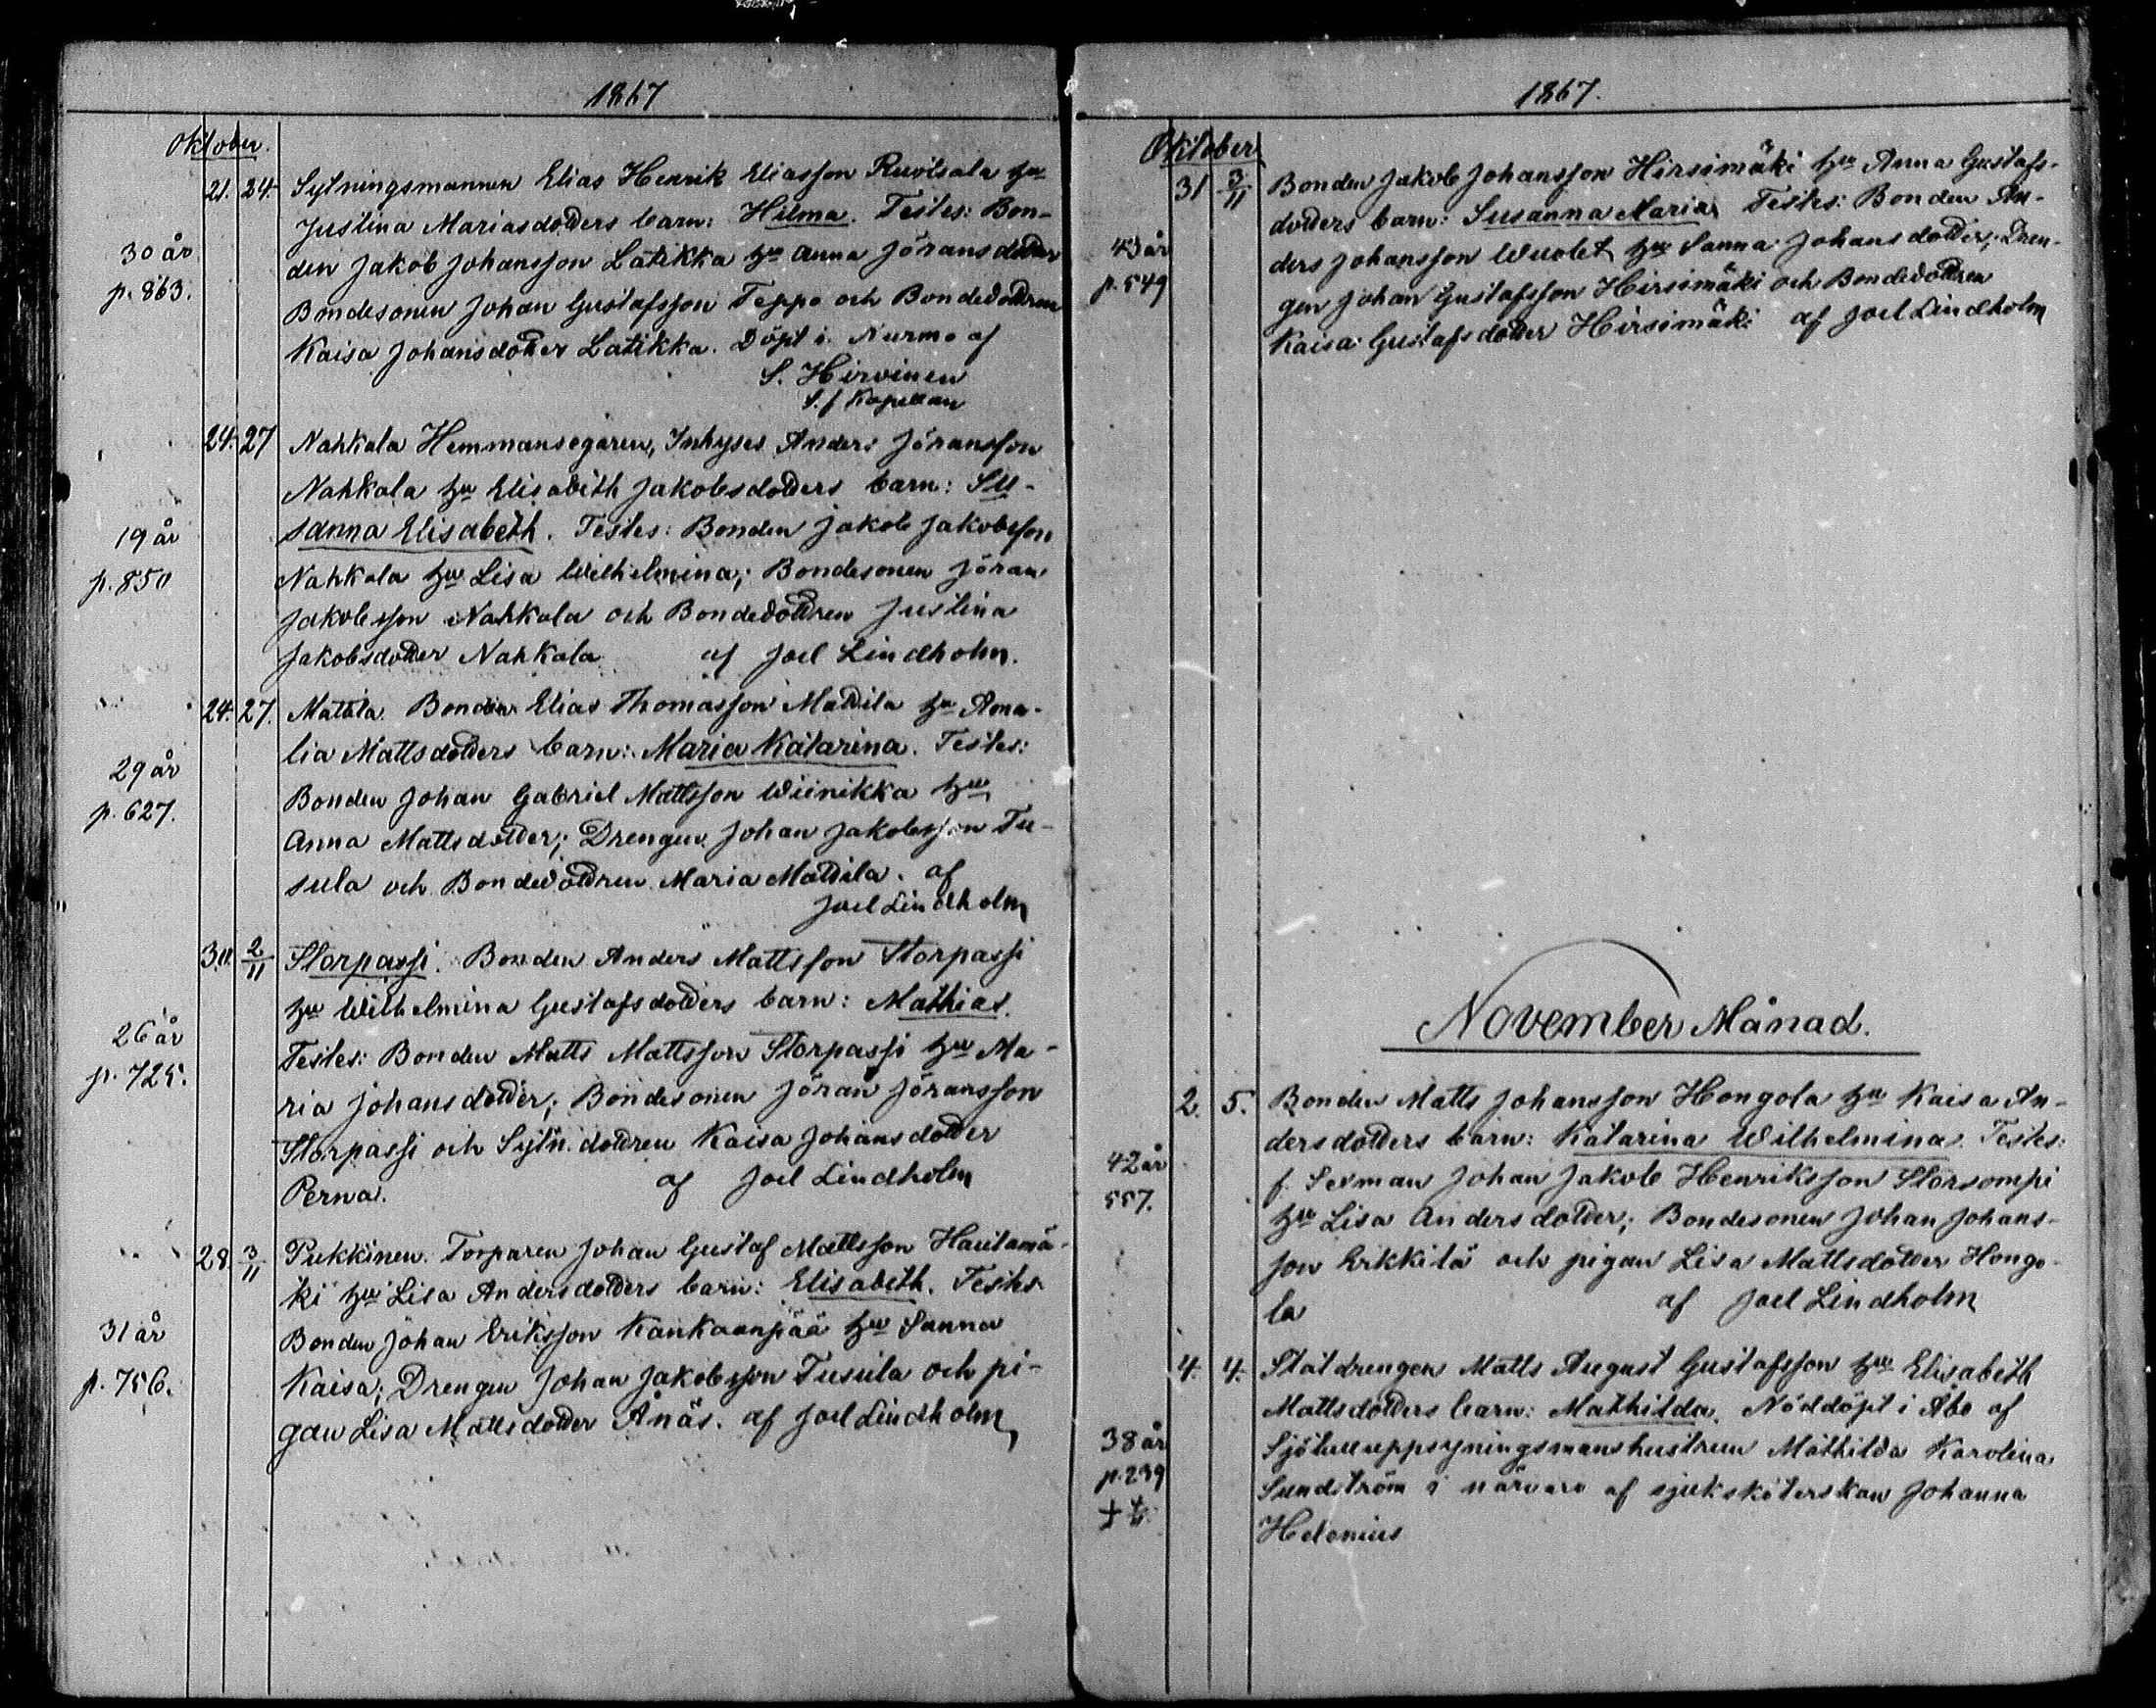 1867
Oktober.
21. 24. Sytningsmannen Elias Henrik Eliasson Ruotsala hu
Justina Mariasdotters barn: Hilma. Testes: Bon-
30 år den Jakob Johansson Latikka hu Anna Jöransdotter
p. 863. Bondesonen Johan Gustafsson Teppo och Bondedottren
Kaisa Johansdotter Latikka. Döpt i Nurmo af
S. Hirvinen
S. f Kapellan
24. 27 Nahkala Hemmansegaren, Inhyses Anders Jöransson
Nahkala hu Elisabeth Jakobsdotters barn: Su-
19 år sanna Elisabeth. Testes: Bonden Jakob Jakobsson
p. 850 Nahkola hu Lisa Wilhelmina; Bondesonen Jöran
Jakobsson Nahkola och Bondedottren Justina
Jakobsdotter Nahkala af Joel Lindholm.
24. 27. Mattila. Bonden Elias Thomasson Mattila hu Ama-
lia Mattsdotters barn: Maria Katarina. Testes:
29 år Bonden Johan Gabriel Mattsson Wiinikka hu
p. 627. Anna Mattsdotter; Drengen Johan Jakobsson Tu-
sula och Bondedottren Maria Mattila. af
Joel Lindholm
30. 2/11 Storpassi. Bonden Anders Mattsson Storpassi
hu Wilhelmina Gustafsdotters barn: Mathias.
26 år Testes: Bonden Matts Mattsson Storpassi hu Ma-
p. 725. ria Johansdotter; Bondesonen Jöran Jöransson
Storpassi och Sytn. dottren Kaisa Johansdotter
Perna. af Joel Lindholm
28. 3/11 Pukkinen. Torparen Johan Gustaf Mattsson Hautamä-
ki hu Lisa Andersdotters barn: Elisabeth. Testes
31 år Bonden Johan Eriksson Kankaanpää hu Sanna
p. 756. Kaisa; Drengen Johan Jakobsson Tusula och pi-
gan Lisa Mattsdotter Ånäs. af Joel Lindholm
1867.
Oktober
31 3/11 Bonden Jakob Johansson Hirsimäki hu Anna Gustafs-
dotters barn: Susanna Maria Testes: Bonden An-
43 år ders Johansson Wuolet hu Sanna Johansdotter; Dren-
p. 549 gen Johan Gustafsson Hirsimäki och Bondedottren
Kaisa Gustafsdotter Hirsimäki af Joel Lindholm
November Månad.
2. 5. Bonden Matts Johansson Hongola hu Kaisa An-
dersdotters barn: Katarina Wilhelmina. Testes:
42 år f. Sexman Johan Jakob Henriksson Storsompi
557. hu Lisa Andersdotter; Bondesonen Johan Johans-
son Erkkilä och pigan Lisa Mattsdotter Hongo-
la af Joel Lindholm
4. 4. Statdrengen Matts August Gustafsson hu Elisabeth
Mattsdotters barn: Mathilda. Nöddöpt i Åbo af
38 år Sjötulluppsyningsmanshustrun Mathilda Karolina
p. 239 Sundström i närvaro af sjuksköterskan Johanna
Helenius